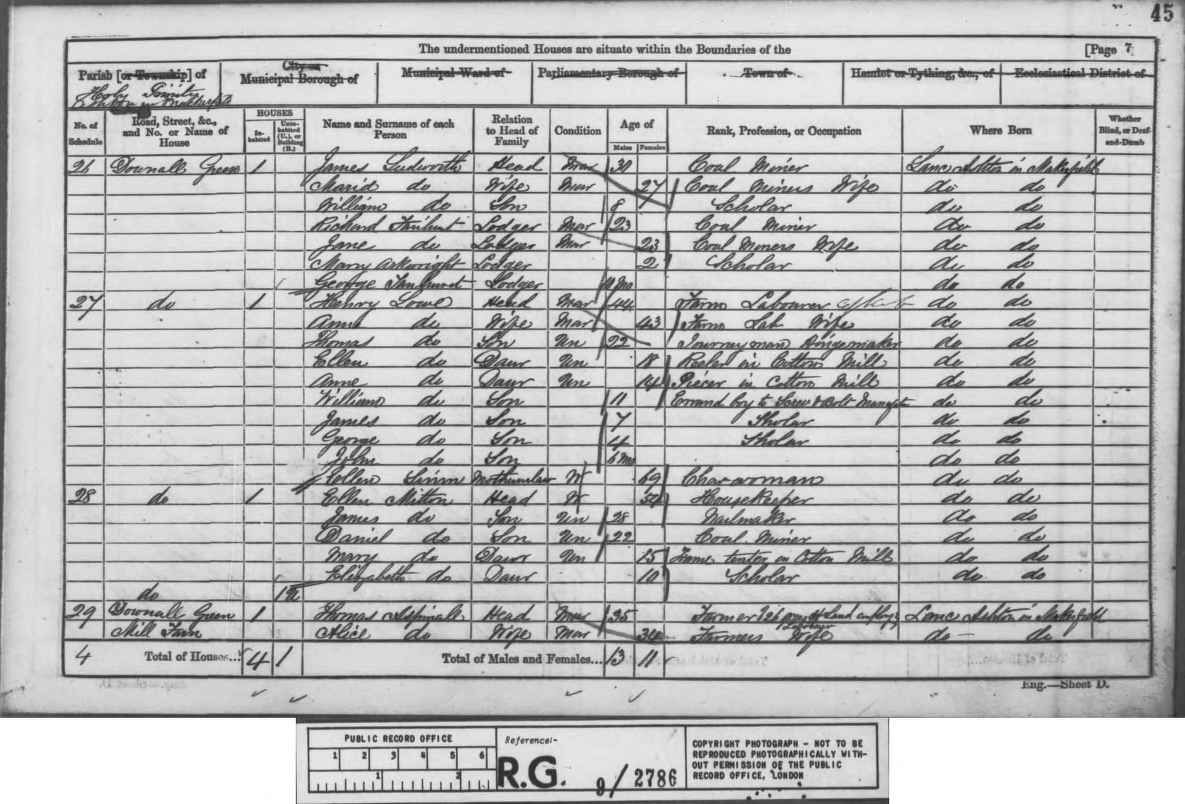 45
The undermentioned Houses are situate within the Boundaries of the [Page 7
Parish [or Township] of City or Municipal Borough of Municipal Ward of Parliamentary Borough of Town of Hamlet or Tything, &c., of Ecclesiastical District of
Holy Trinity
Ashton in Makerfield
No. of Schedule Road, Street, &c., and No. or Name of House HOUSES Inhabited Uninhabited (U.), or Building (B.) Name and Surname of each Person Relation to Head of Family Condition Age of Males Females Rank, Profession, or Occupation Where Born Whether Blind, or Deaf-and-Dumb
26 Downall Green 1 James Head Mar 30 Coal Miner Lanc Ashton in Makerfield
do Wife Mar 27 Coal Miners Wife do do
William do Son 8 Scholar do do
Richard Lodger Mar 23 Coal Miner do do
Jane do Lodger Mar 23 Coal Miners Wife do do
Mary Arkwright Lodger 2 Scholar do do
George Lodger Mo do do
27 do 1 Henry Lowe Head Mar 44 Farm Labourer do do
Ann do Wife Mar 43 Farm Lab Wife do do
Thomas do Son Un 22 Journeyman Hingemaker do do
Ellen do Daur Un 18 Reeler in Cotton Mill do do
Anne do Daur Un 14 Piecer in Cotton Mill do do
William do Son 11 Errand boy to Screw & Bolt do do
James do Son 7 Sholar do do
George do Son 4 Sholar do do
John do Son 6 Mo do do
Ellen Motherinlaw W 69 Charwoman do do
28 do 1 Ellen Mitton Head W Housekeeper do do
James do Son Un 28 Nailmaker do do
Daniel do Son Un 22 Coal Miner do do
Mary do Daur Un 15 Frame in Cotton Mill do do
Elizabeth do Daur 10 Scholar do do
do
29 Downall Green 1 Thomas Aspinall Head Mar 35 Farmer 26 Land Lanc Ashton in Makerfield
Mill Farm Alice do Wife Mar 34 Farmers Wife do do
4 Total of Houses... 4 1 Total of Males and Females... 13 11
Eng.—Sheet D.
PUBLIC RECORD OFFICE
1 2 3 4 5 6
1 2
Reference:-
R.G. 9/2786
COPYRIGHT PHOTOGRAPH - NOT TO BE
REPRODUCED PHOTOGRAPHICALLY WITH-
OUT PERMISSION OF THE PUBLIC
RECORD OFFICE, LONDON